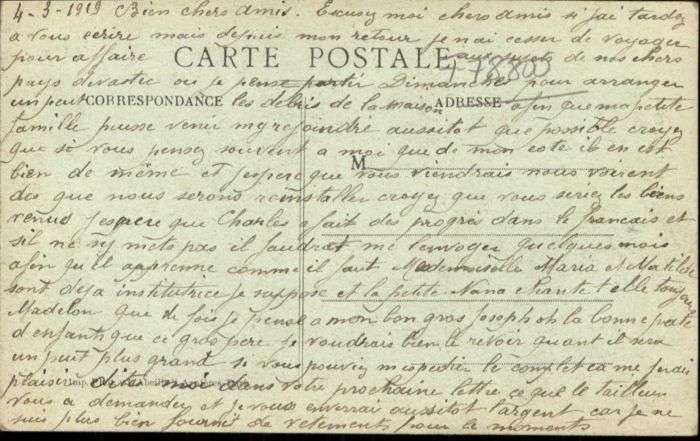 4-3-1919 Bien chers amis. Excusez moi chers amis si j'ai tardez
a vous ecrire mais depuis mon retour je n'ai cesser de voyager
pour affaire aux sujets de nos chers
CARTE POSTALE
T 78800
pays devastee ou je pense partir Dimanche pour arranger
un peut les debris de la maison afin que ma petite
CORRESPONDANCE ADRESSE
famille puisse venir my rejoindre aussitot que possible croyez
que si vous pensez souvent a moi que de mon cote il en est
M
bien de même et j'espere que vous viendrais nous voir en
des que nous serons reinstaller croyez que vous seriez les biens
venus j'espere que Charles a fait des progrès dans le francais et
sil ne s'y mets pas il faudrat me l'envoyer quelques mois
afin qu'il apprenne comme il faut Mademoiselle Maria et Matilde
sont deja institutrice je suppose et la petite Nana chante t'elle toujours
Madelon que de fois je pense a mon bon gros Joseph oh la bonne pate
d'enfants que ce gros pere je voudrais bien le revoir quant il sera
un peut plus grand si vous pouviez m'expedier le complet ca me ferais
plaisir dites moi dans votre prochaine lettre ce que le tailleur
vous a demander et je vous enverrai aussitot l'argent car je ne
suis plus bien fournie de vetements pour ce moments